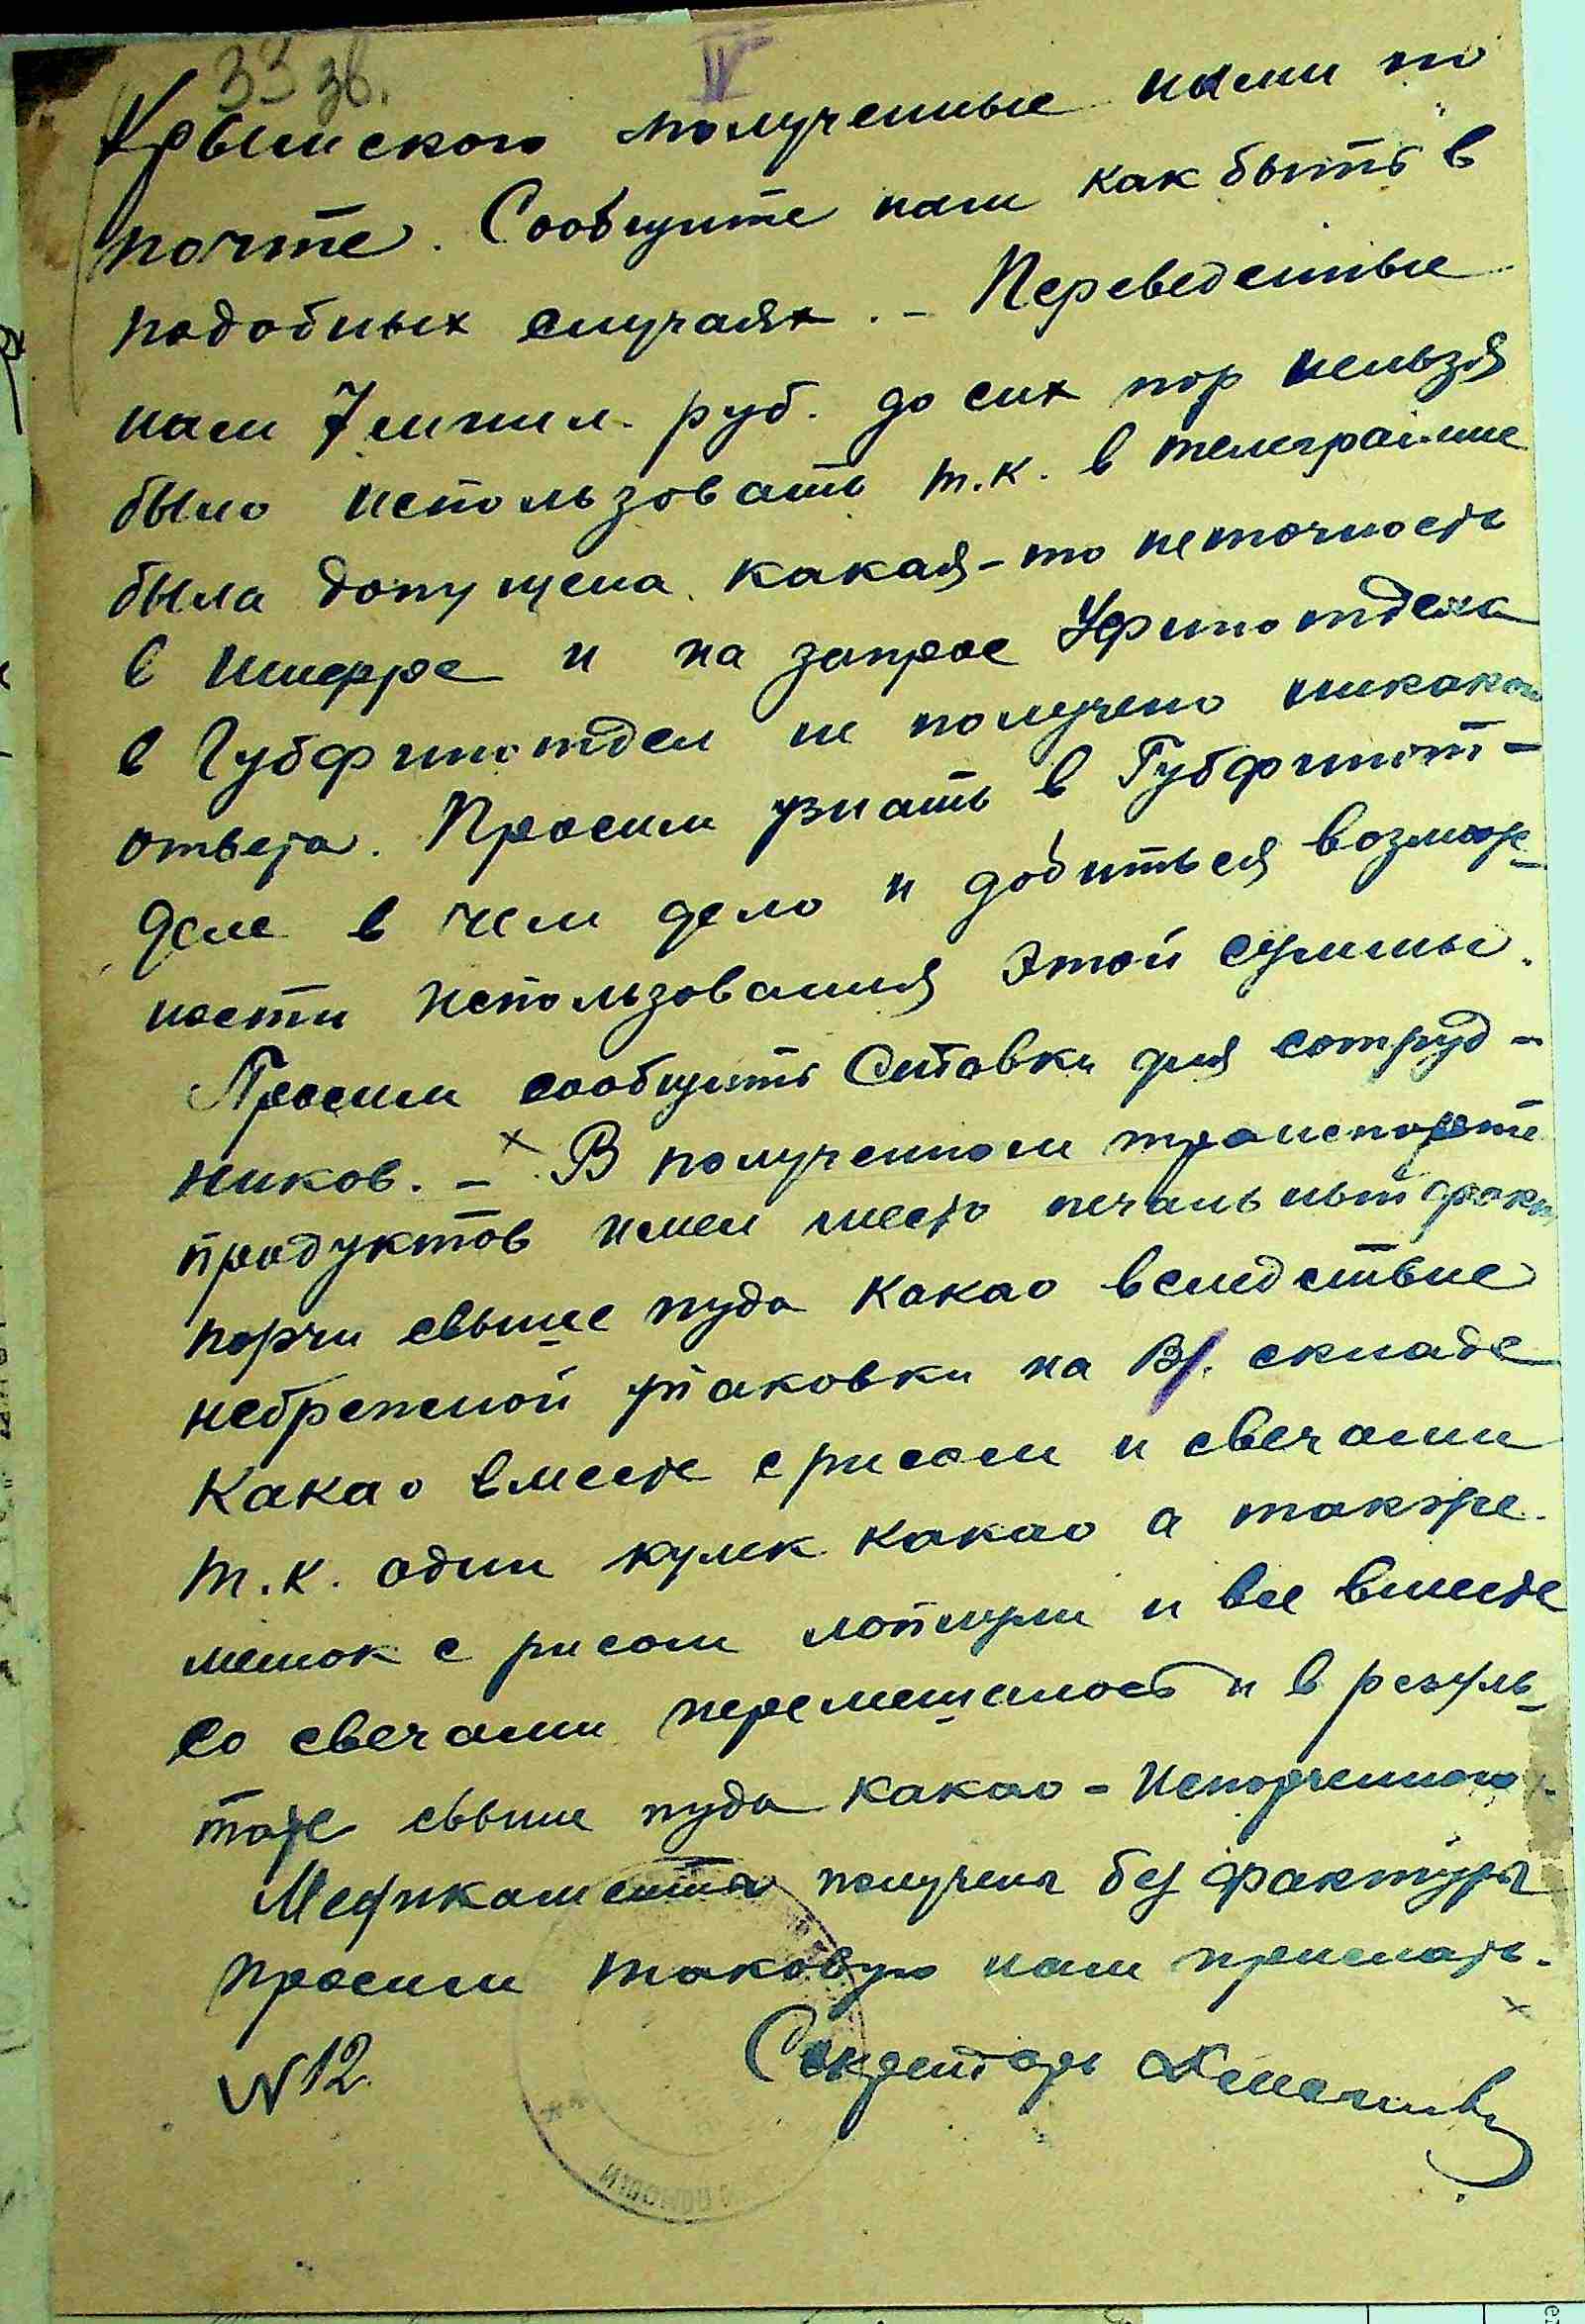 33 зв.
IV
Крымского полученные нами по
почте. Сообщите нам как быть в
подобных случаях. – Переведенные
нам 7 милил. руб. до сих пор нельзя
было использовать т.к. в телеграмме
была допущена какая-то неточность
в шифре и на запрос Уфинотдела
в Губфинотдел не получено никакого
ответа. Просим узнать в Губфинот-
деле в чем дело и добиться возмож-
ности использования этой суммы.
Просим сообщить Ставки для сотруд-
ников. – В полученном транспорте
продуктов имел место печальный факт
порчи свыше пуда какао вследствие
небрежной упаковки на складе
Какао вместе с рисом и свечами
т.к. один кулек какао а также
мешок с рисом лопнули и все вместе
со свечами перемешалось и в резуль-
тате свыше пуда какао – испорченного.
Медикаменты получены без фактуры
просим таковую нам прислать.
№ 12 Секретарь